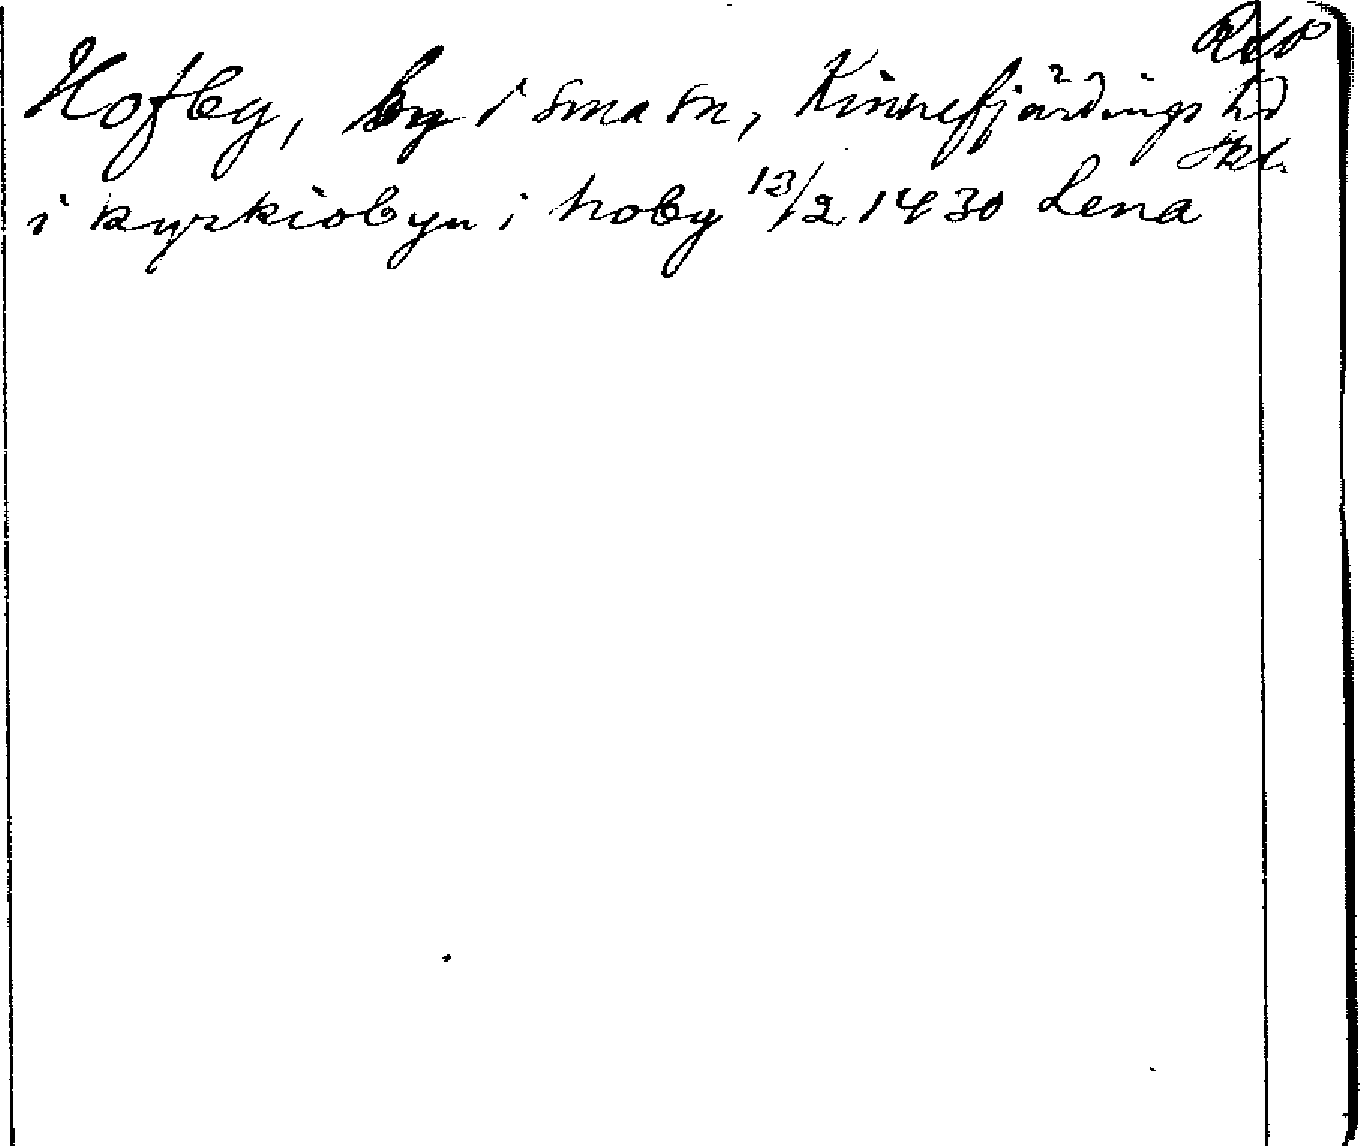 Hofby, by i Sma sn, Kinnefjärdings hd
Skl.
i kyrkiobyn i hoby 13/2 1430 Lena